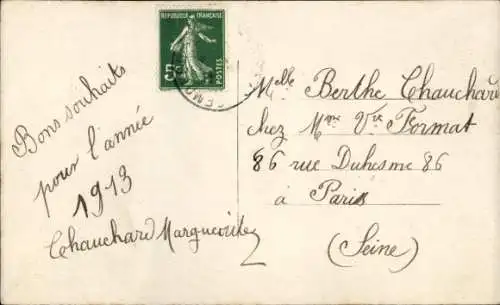 Bons souhaits
pour l'année
1913
Chauchard Marguerite
REPUBLIQUE FRANÇAISE
POSTES
Melle Berthe Chauchard
chez Mme Vve Format
86 rue Duhesme 86
à Paris
(Seine)